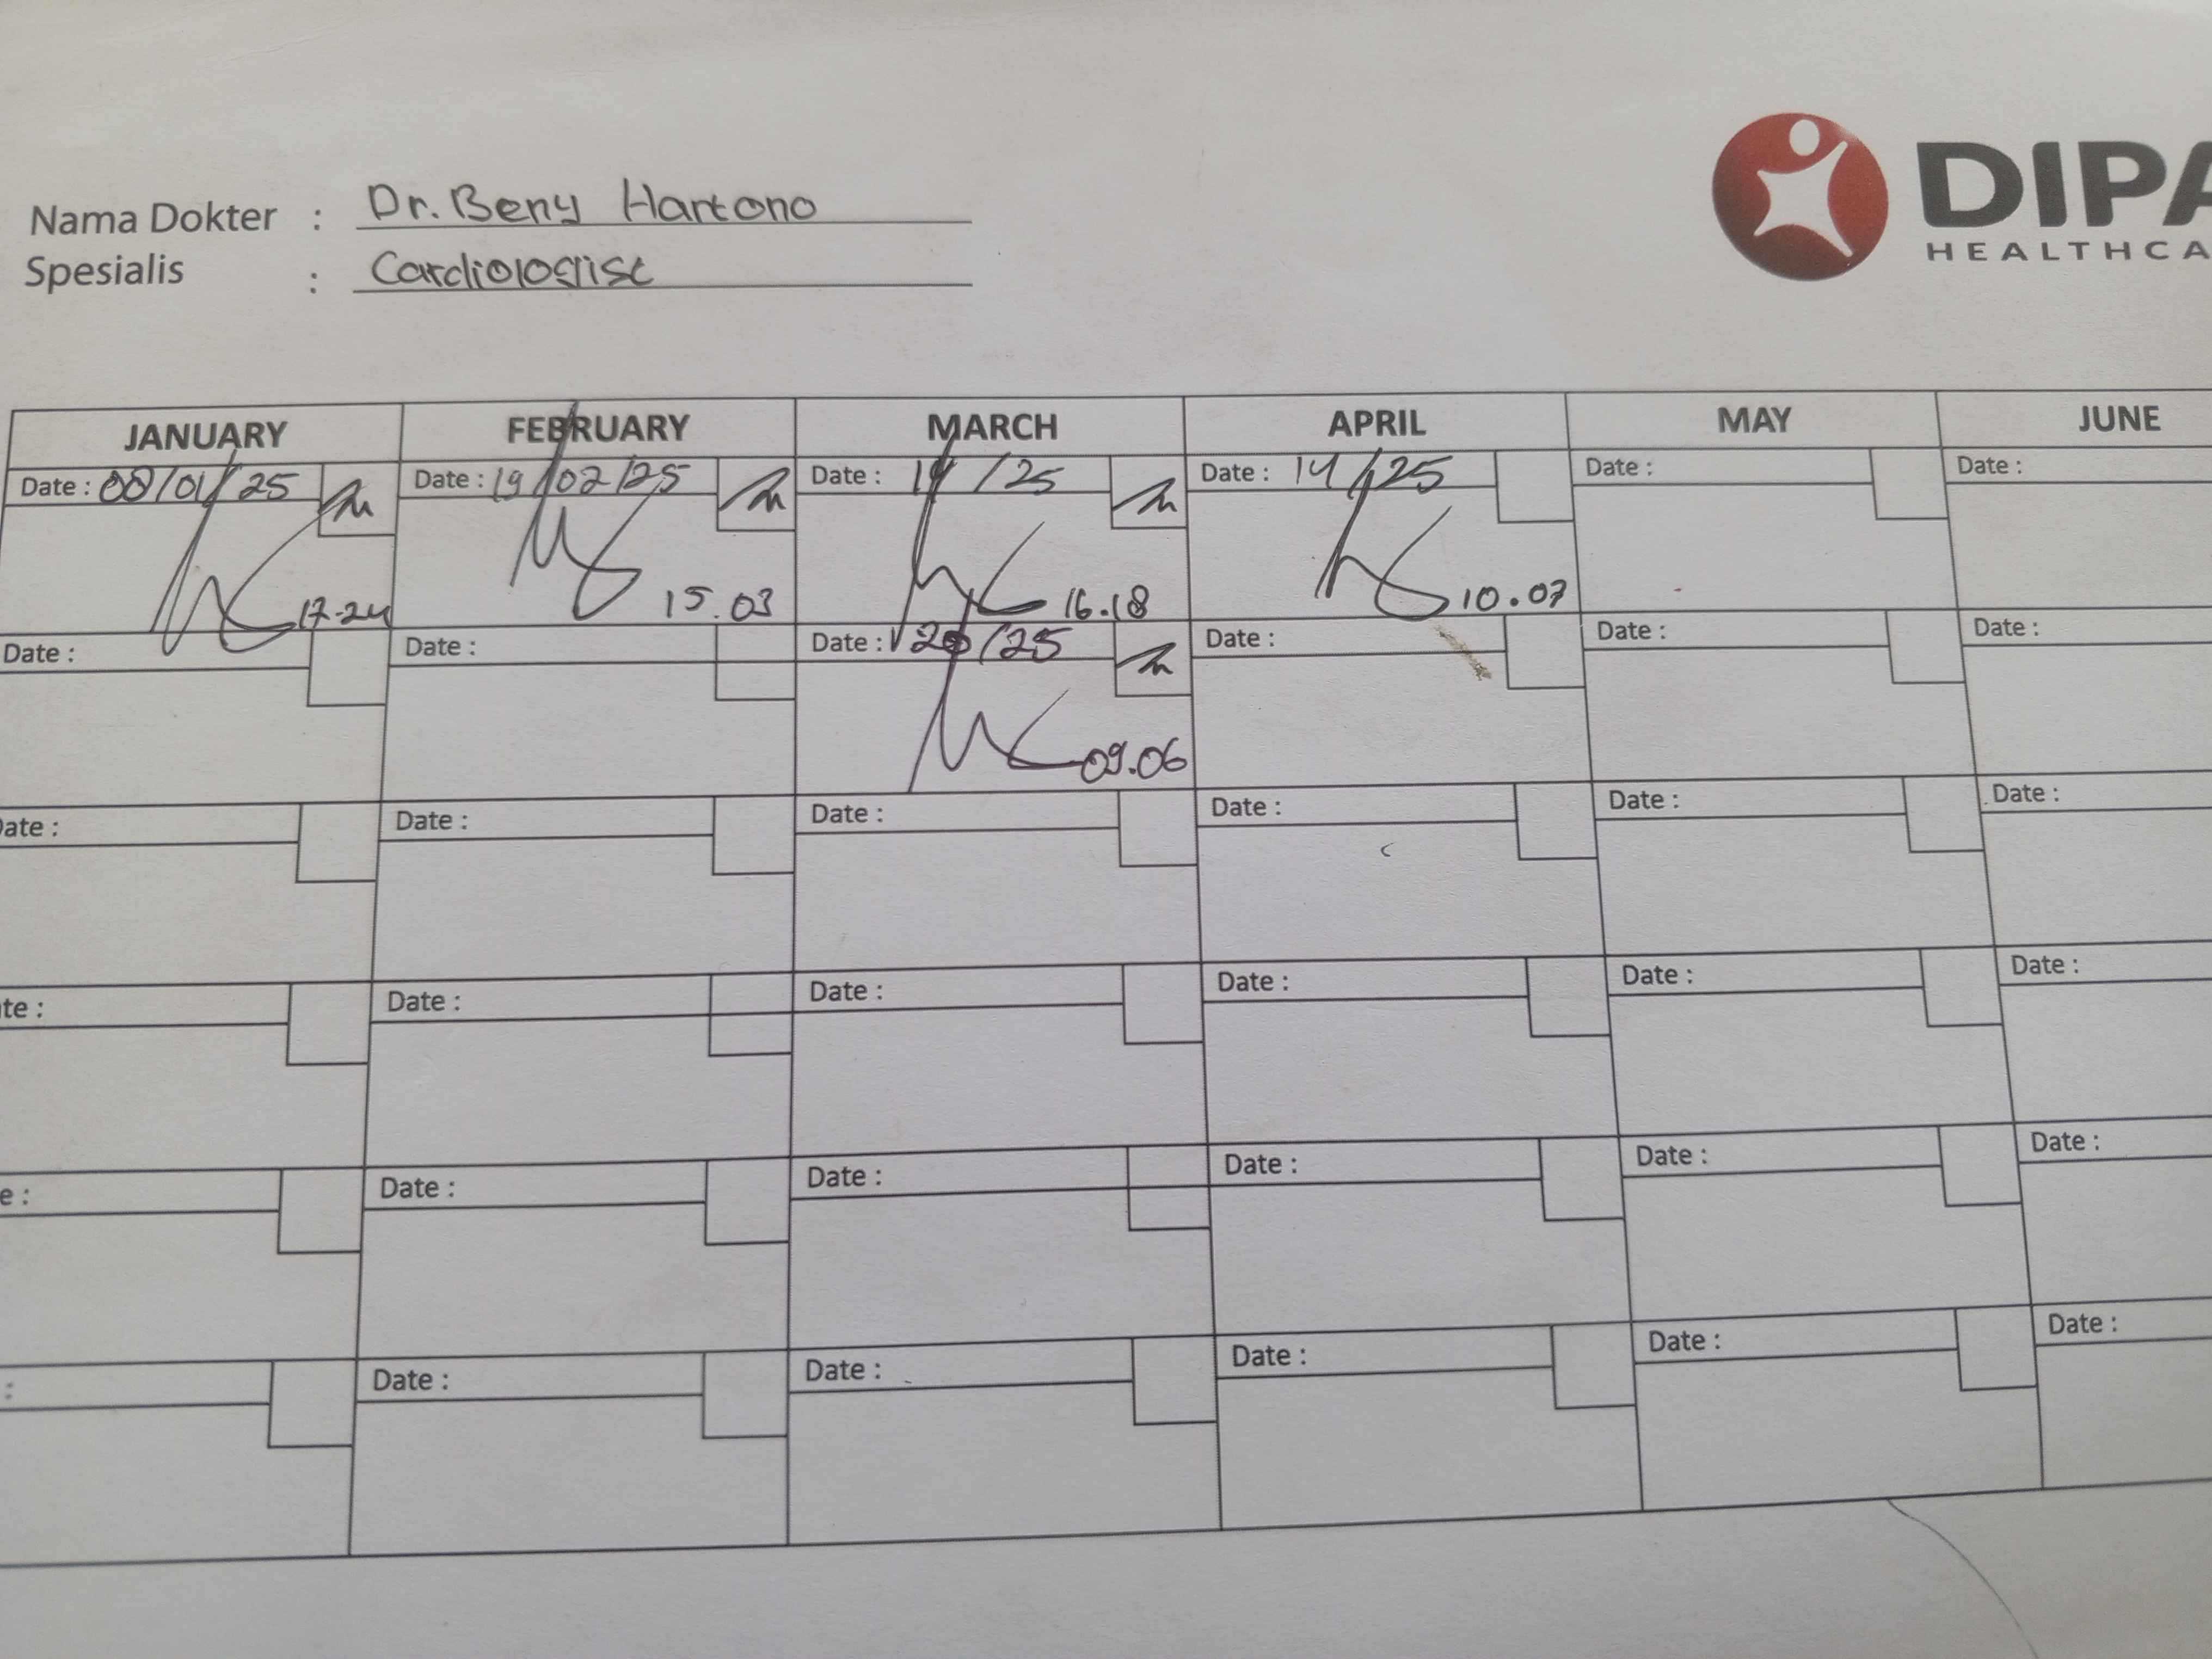 Nama Dokter : Dr. Beny Hartono
Spesialis : Cardiologist
DIPA
HEALTHCA
JANUARY FEBRUARY MARCH APRIL MAY JUNE
Date : 08/01/25 Date : 19/02/25 Date : /25 Date : 14/25 Date : Date :
17-24 15.03 16.18 10.07
Date : Date : Date : /25 Date : Date : Date :
09.06
Date : Date : Date : Date : Date : Date :
te : Date : Date : Date : Date : Date :
e : Date : Date : Date : Date : Date :
: Date : Date : Date : Date : Date :